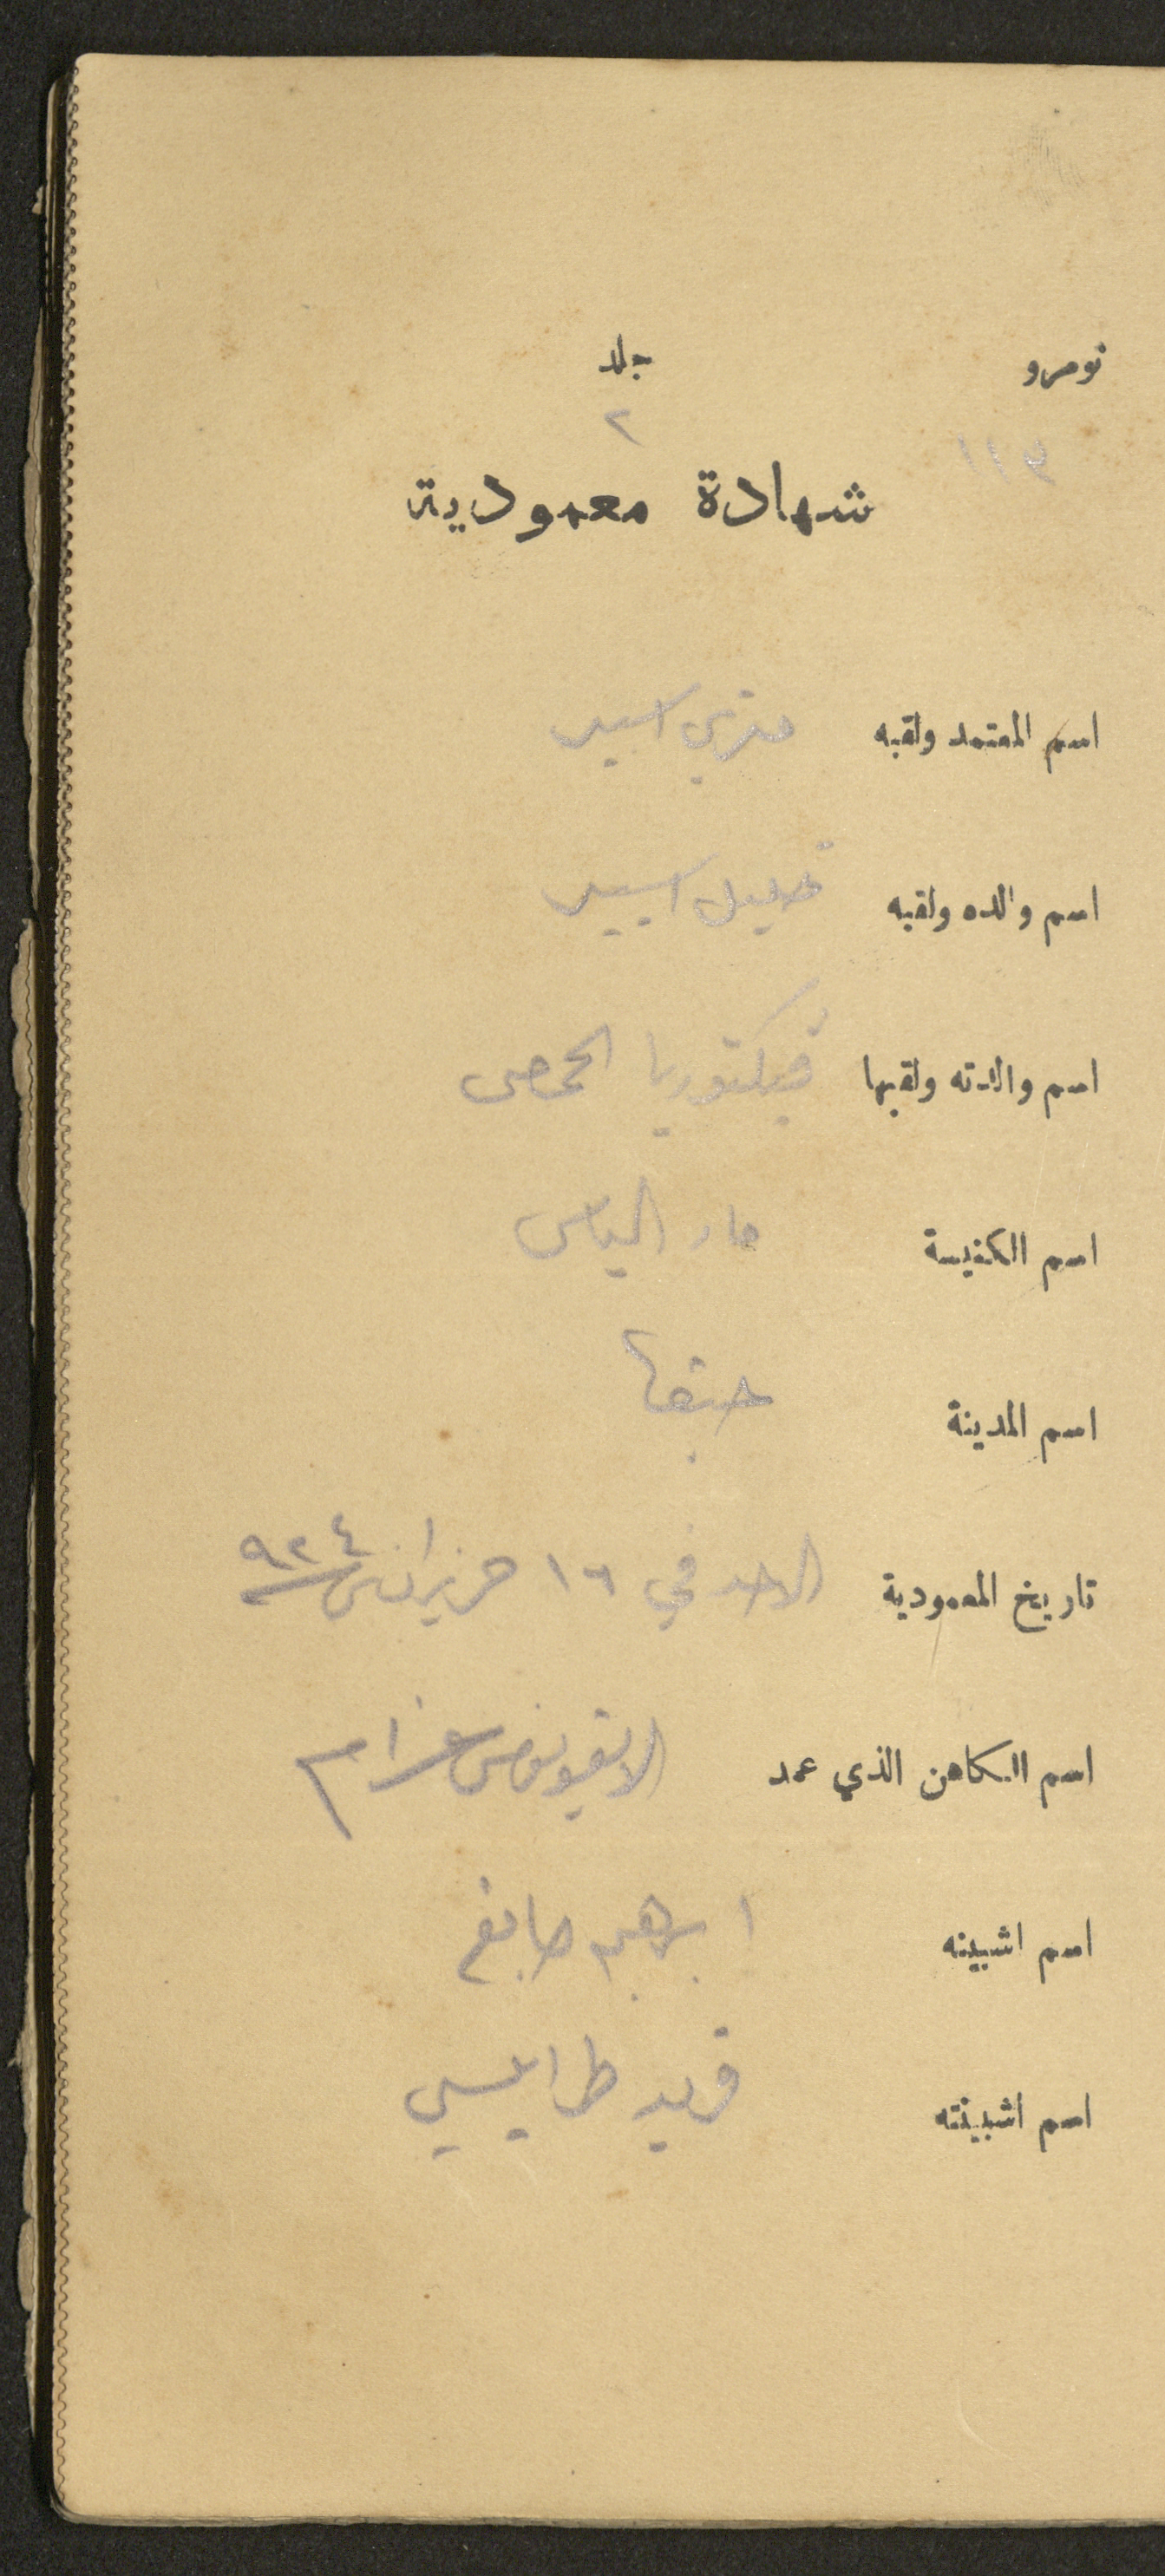 نومرو جلد
١١٣ ٢
شهادة معمودية
اسم المعتمد ولقبه هنري اسبير
اسم والده ولقبه خليل اسبير
اسم والدته ولقبها فيكتوريا الحمصي
اسم الكنيسة مار الياس
اسم المدينة حيفا
تاريخ المعمودية الاحد في ١٦ حزيران سـ ٩٢٤
اسم الكاهن الذي عمد عزام
اسم اشبينه ابرهيم صايغ
اسم اشبينته فريد طرابلسي